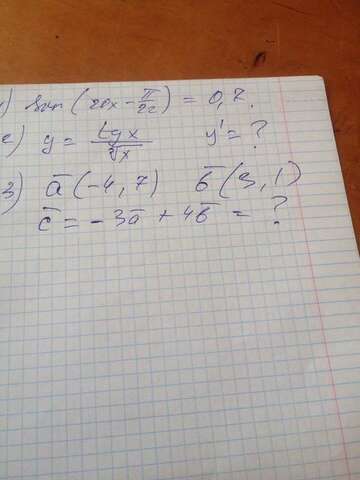 1) sin(20x - π/22) = 0,7.
2) y = tg x / ∛x    y' = ?
3) a̅(-4, 7)    b̅(3, 1)
c̅ = -3a̅ + 4b̅ = ?